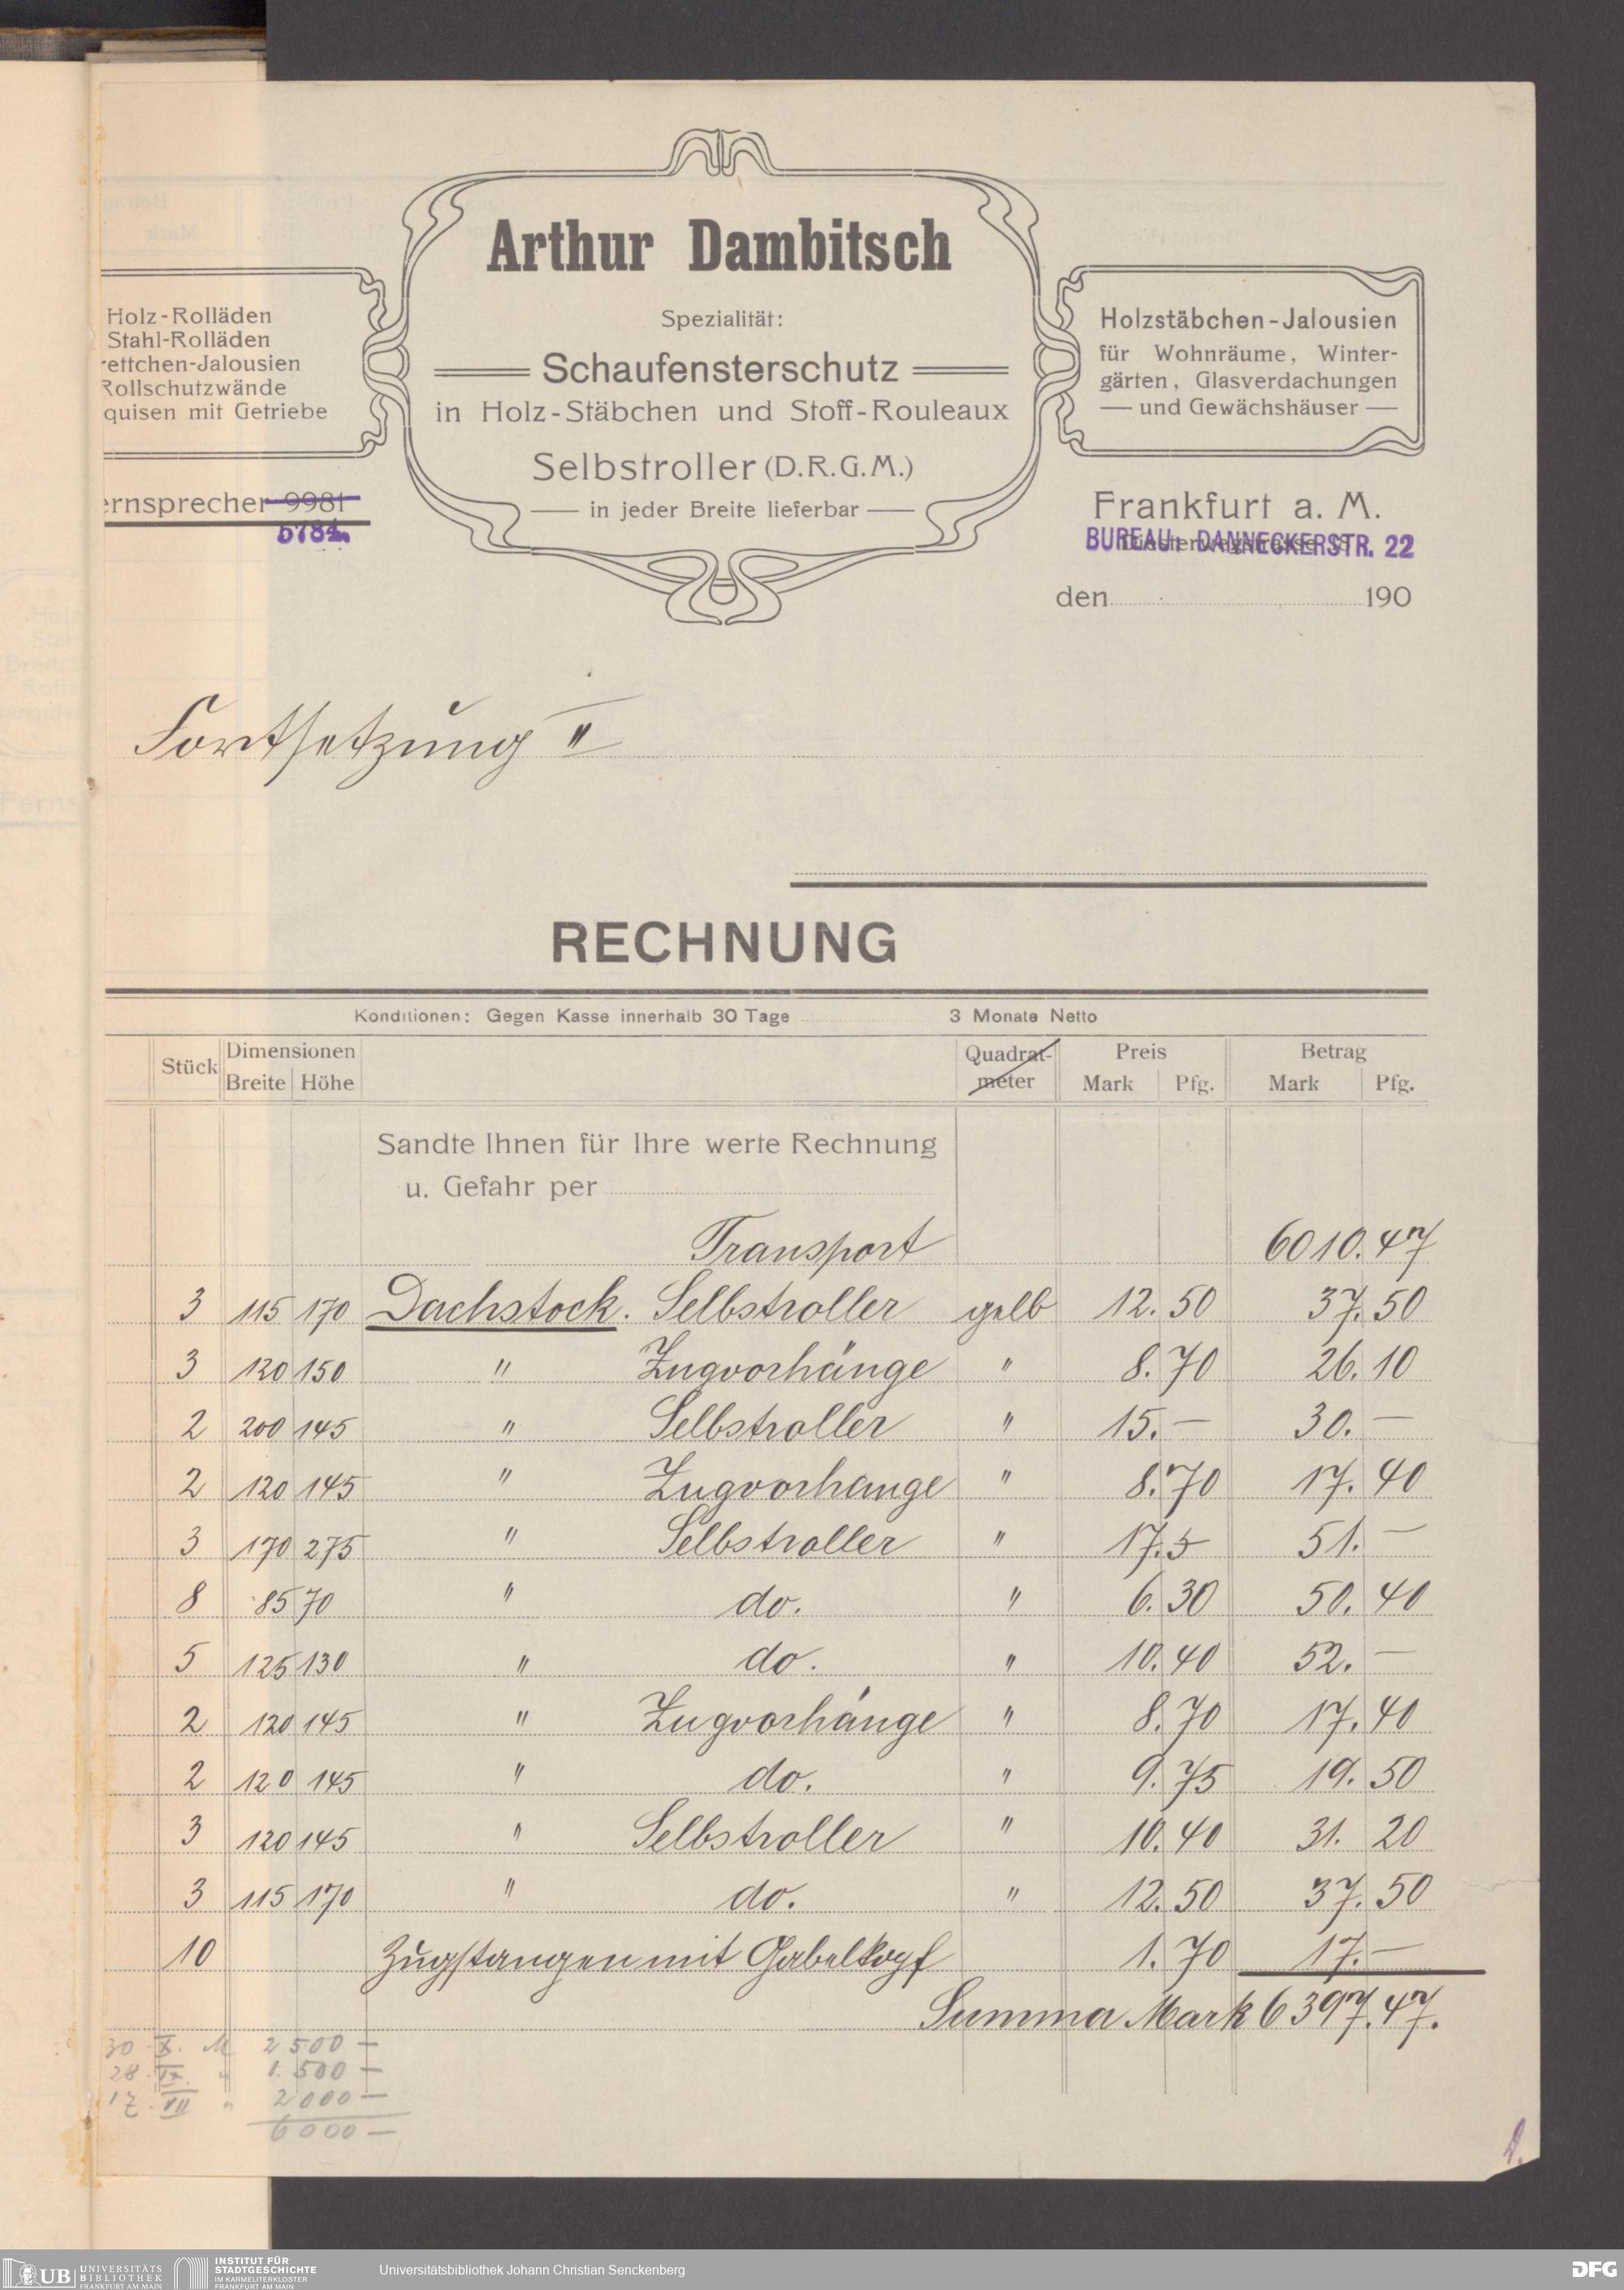 Arthur Dambitsch
Spezialität:
Schaufensterschutz
in Holz-Stäbchen und Stoff-Rouleaux
Selbstroller (D.R.G.M.)
in jeder Breite lieferbar
Holz-Rolläden
Stahl-Rolläden
rettchen-Jalousien
Rollschutzwände
quisen mit Getriebe
ernsprecher 9981
5784.
Holzstäbchen-Jalousien
für Wohnräume, Winter-
gärten, Glasverdachungen
und Gewächshäuser
Frankfurt a. M.
BUREAU: DANNECKERSTR. 22
den 190
Fortsetzung II
RECHNUNG
Konditionen: Gegen Kasse innerhalb 30 Tage 3 Monate Netto
Stück Dimensionen Quadrat-meter Preis Betrag
Breite Höhe Mark Pfg. Mark Pfg.
Sandte Ihnen für Ihre werte Rechnung
u. Gefahr per
Transport 6010.47
3 115 170 Dachstock. Selbstroller gelb 12.50 37.50
3 120 150 " Zugvorhänge " 8.70 26.10
2 200 145 " Selbstroller " 15.— 30.—
2 120 145 " Zugvorhange " 8.70 17.40
3 170 275 " Selbstroller " 17.— 51.—
8 85 70 " do. " 6.30 50.40
5 125 130 " do. " 10.40 52.—
2 120 145 " Zugvorhänge " 8.70 17.40
2 120 145 " do. " 9.75 19.50
3 120 145 " Selbstroller " 10.40 31.20
3 115 170 " do. " 12.50 37.50
10 Zugstangen mit Gabelkopf 1.70 17.—
Summa Mark 6397.47.
30. X. M 2500 —
28. IX. " 1.500 —
17. VII " 2000 —
6000 —
UB UNIVERSITÄTS BIBLIOTHEK FRANKFURT AM MAIN
INSTITUT FÜR STADTGESCHICHTE IM KARMELITERKLOSTER FRANKFURT AM MAIN
Universitätsbibliothek Johann Christian Senckenberg
DFG